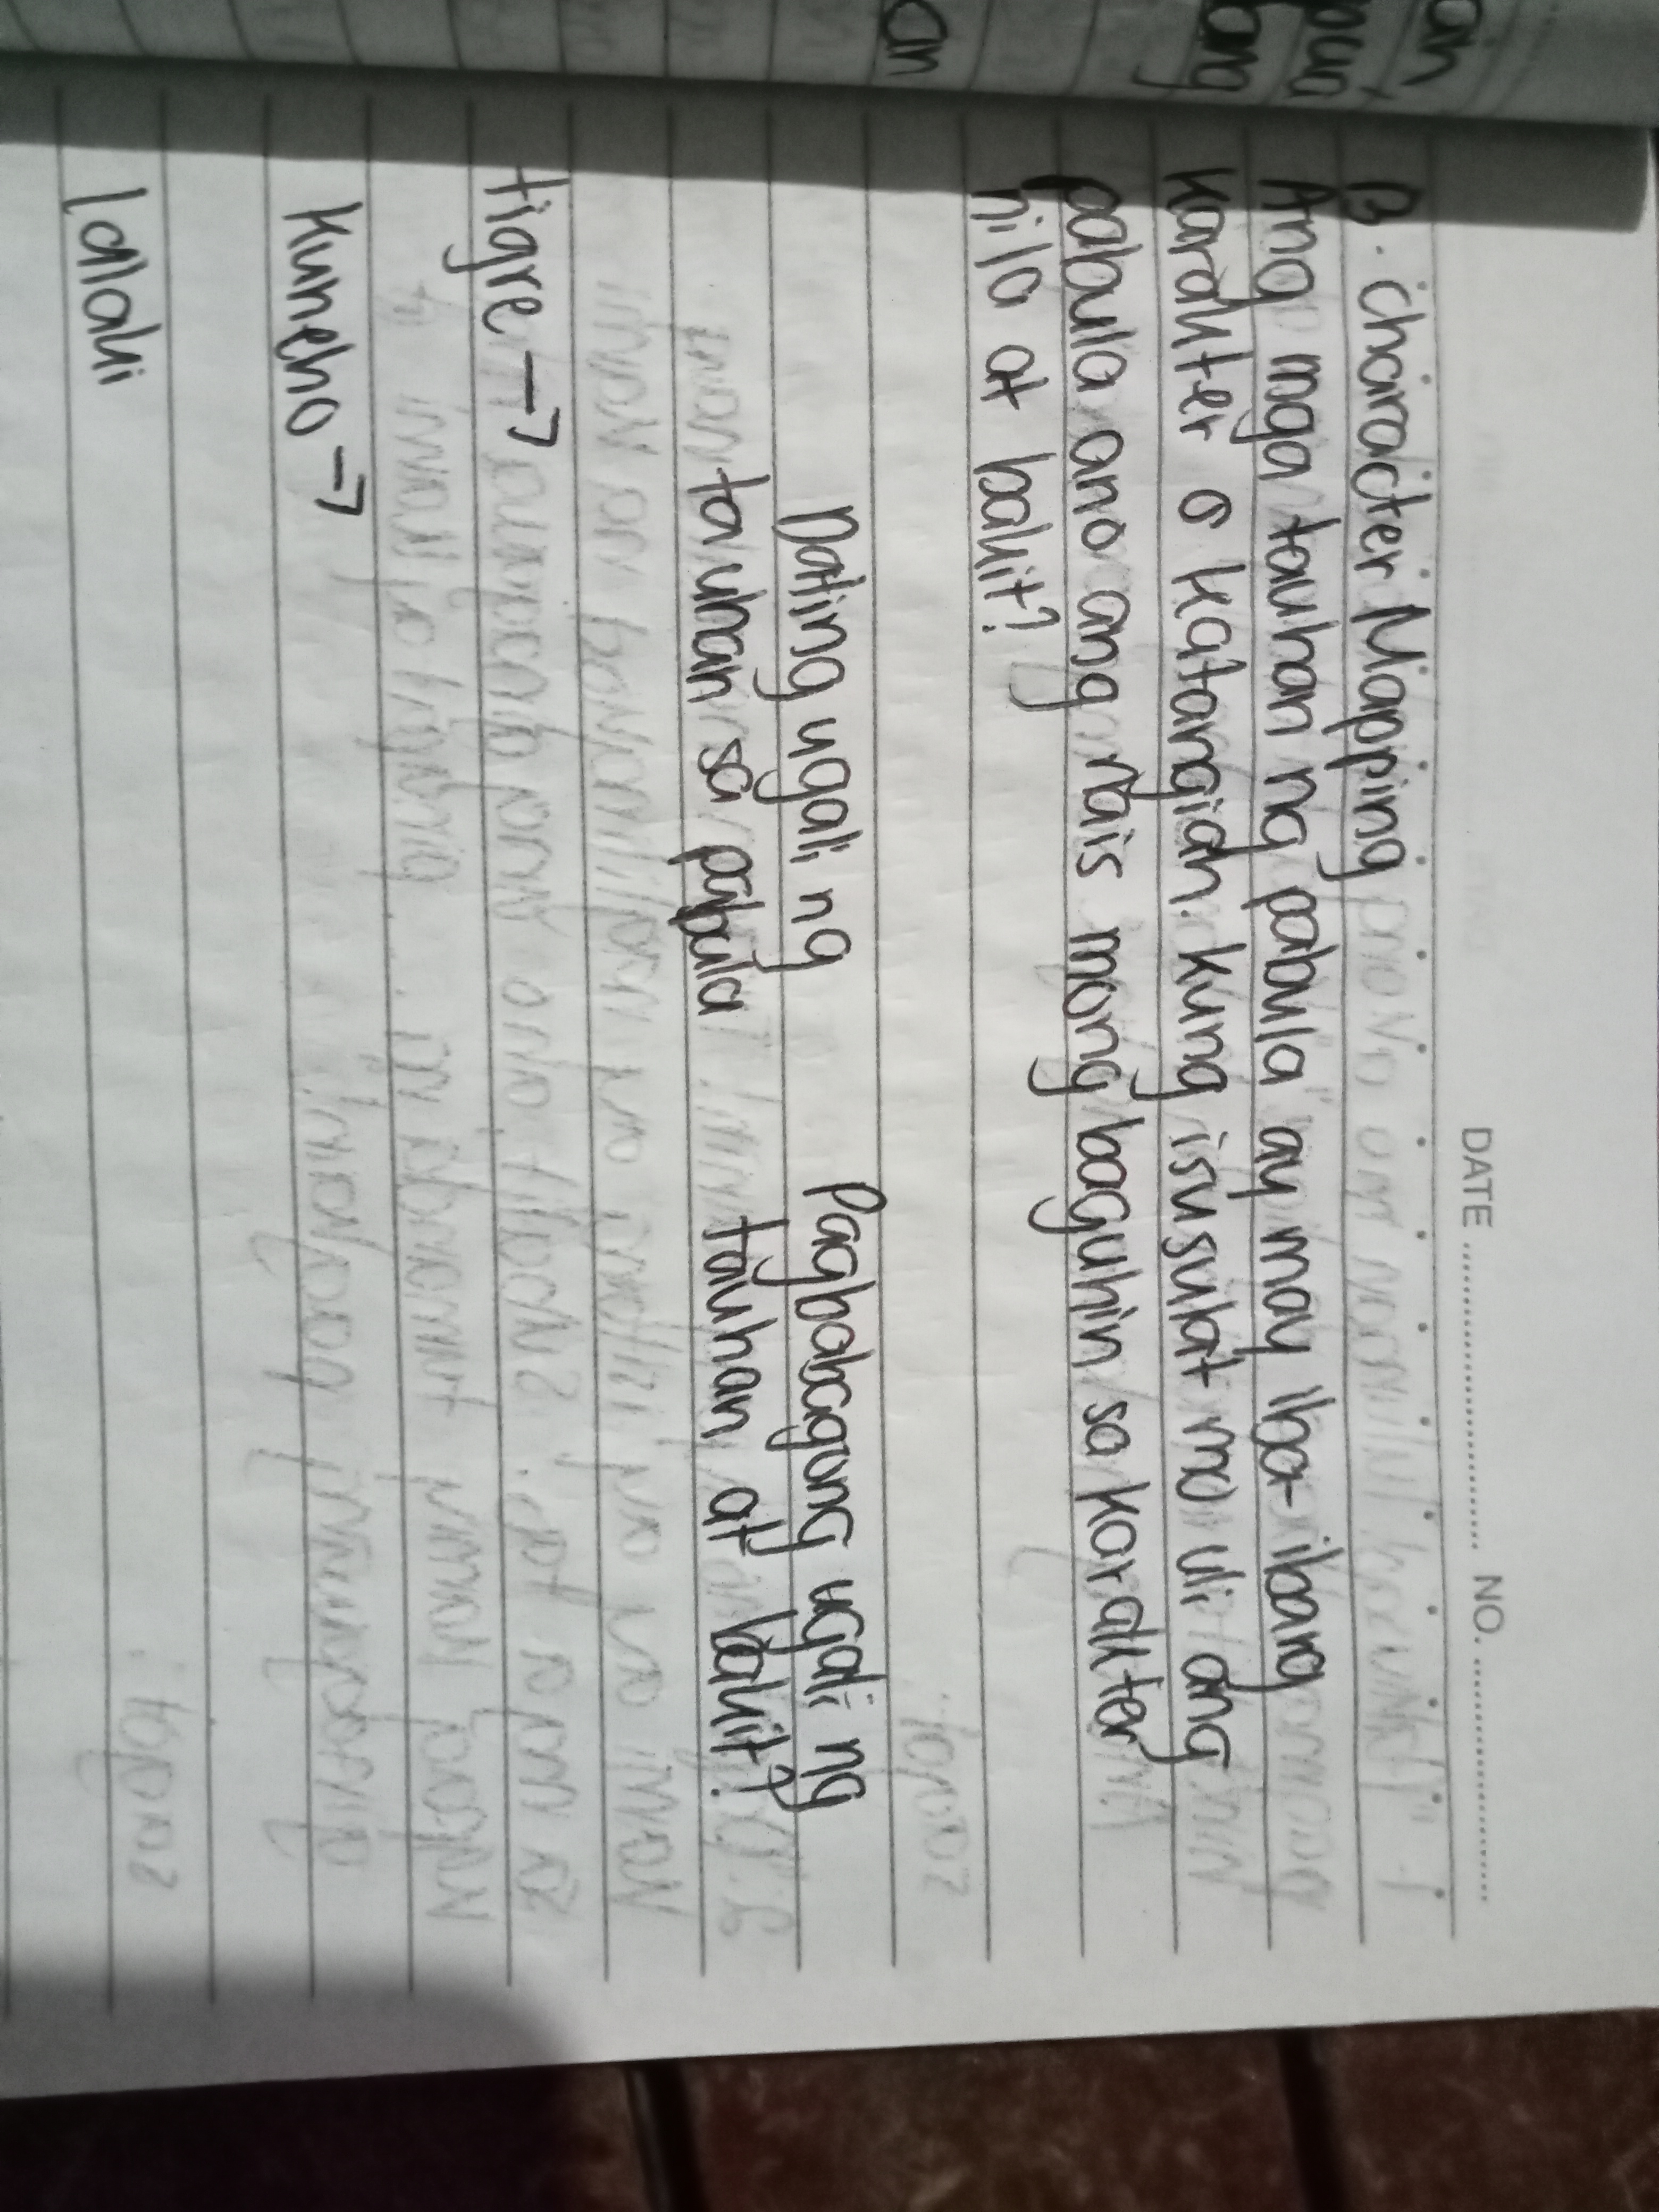 DATE NO.
B. Character Mapping
Ang mga tauhan ng pabula ay may iba-ibang
karakter o katangian. kung isusulat mo uli ang
pabula ano ang nais mong baguhin sa karakter
nila at bakit?
Dating ugali ng Pagbabagong ugali ng
tauhan sa pabula tauhan at bakit?
tigre →
Kuneho →
lalaki